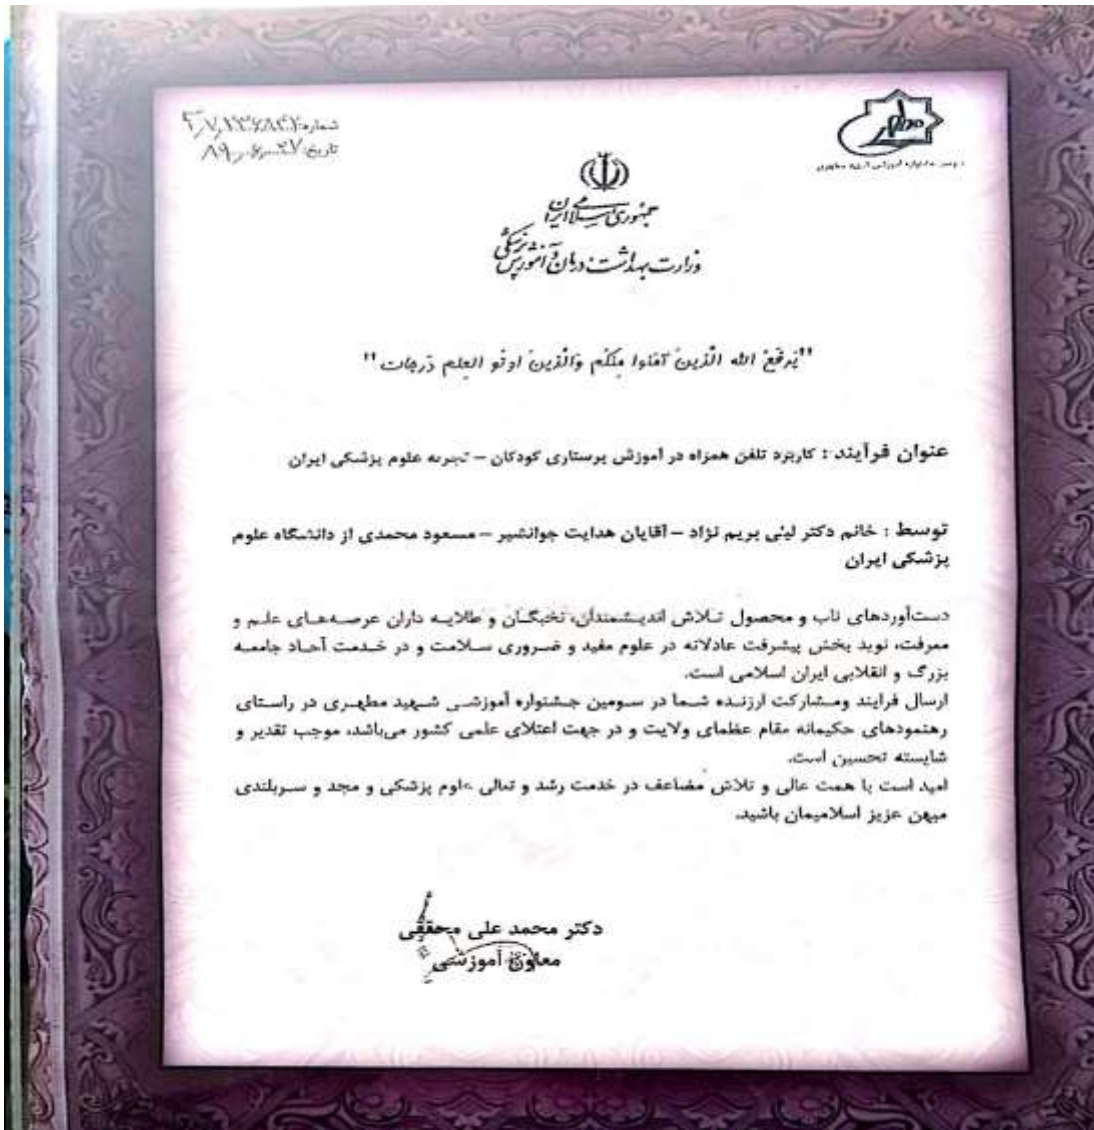 شماره:
تاریخ: ۲۷-۶-۸۹
جشنواره آموزشی شهید مطهری
جمهوری اسلامی ایران
وزارت بهداشت، درمان و آموزش پزشکی
"یَرفَعُ الله الّذینَ آمَنوا مِنکُم وَالّذینَ اوتُو العِلم دَرجات"
عنوان فرآیند : کاربرد تلفن همراه در آموزش پرستاری کودکان – تجربه علوم پزشکی ایران
توسط : خانم دکتر لیلی بریم نژاد – آقایان هدایت جوانشیر – مسعود محمدی از دانشگاه علوم
پزشکی ایران
دست‌آوردهای ناب و محصول تلاش اندیشمندان، نخبگان و طلایه داران عرصه‌های علم و
معرفت، نوید بخش پیشرفت عادلانه در علوم مفید و ضروری سلامت و در خدمت آحاد جامعه
بزرگ و انقلابی ایران اسلامی است.
ارسال فرایند ومشارکت ارزنده شما در سومین جشنواره آموزشی شهید مطهری در راستای
رهنمودهای حکیمانه مقام عظمای ولایت و در جهت اعتلای علمی کشور می‌باشد، موجب تقدیر و
شایسته تحسین است.
امید است با همت عالی و تلاش مضاعف در خدمت رشد و تعالی علوم پزشکی و مجد و سربلندی
میهن عزیز اسلامیمان باشید.
دکتر محمد علی محققی
معاون آموزشی